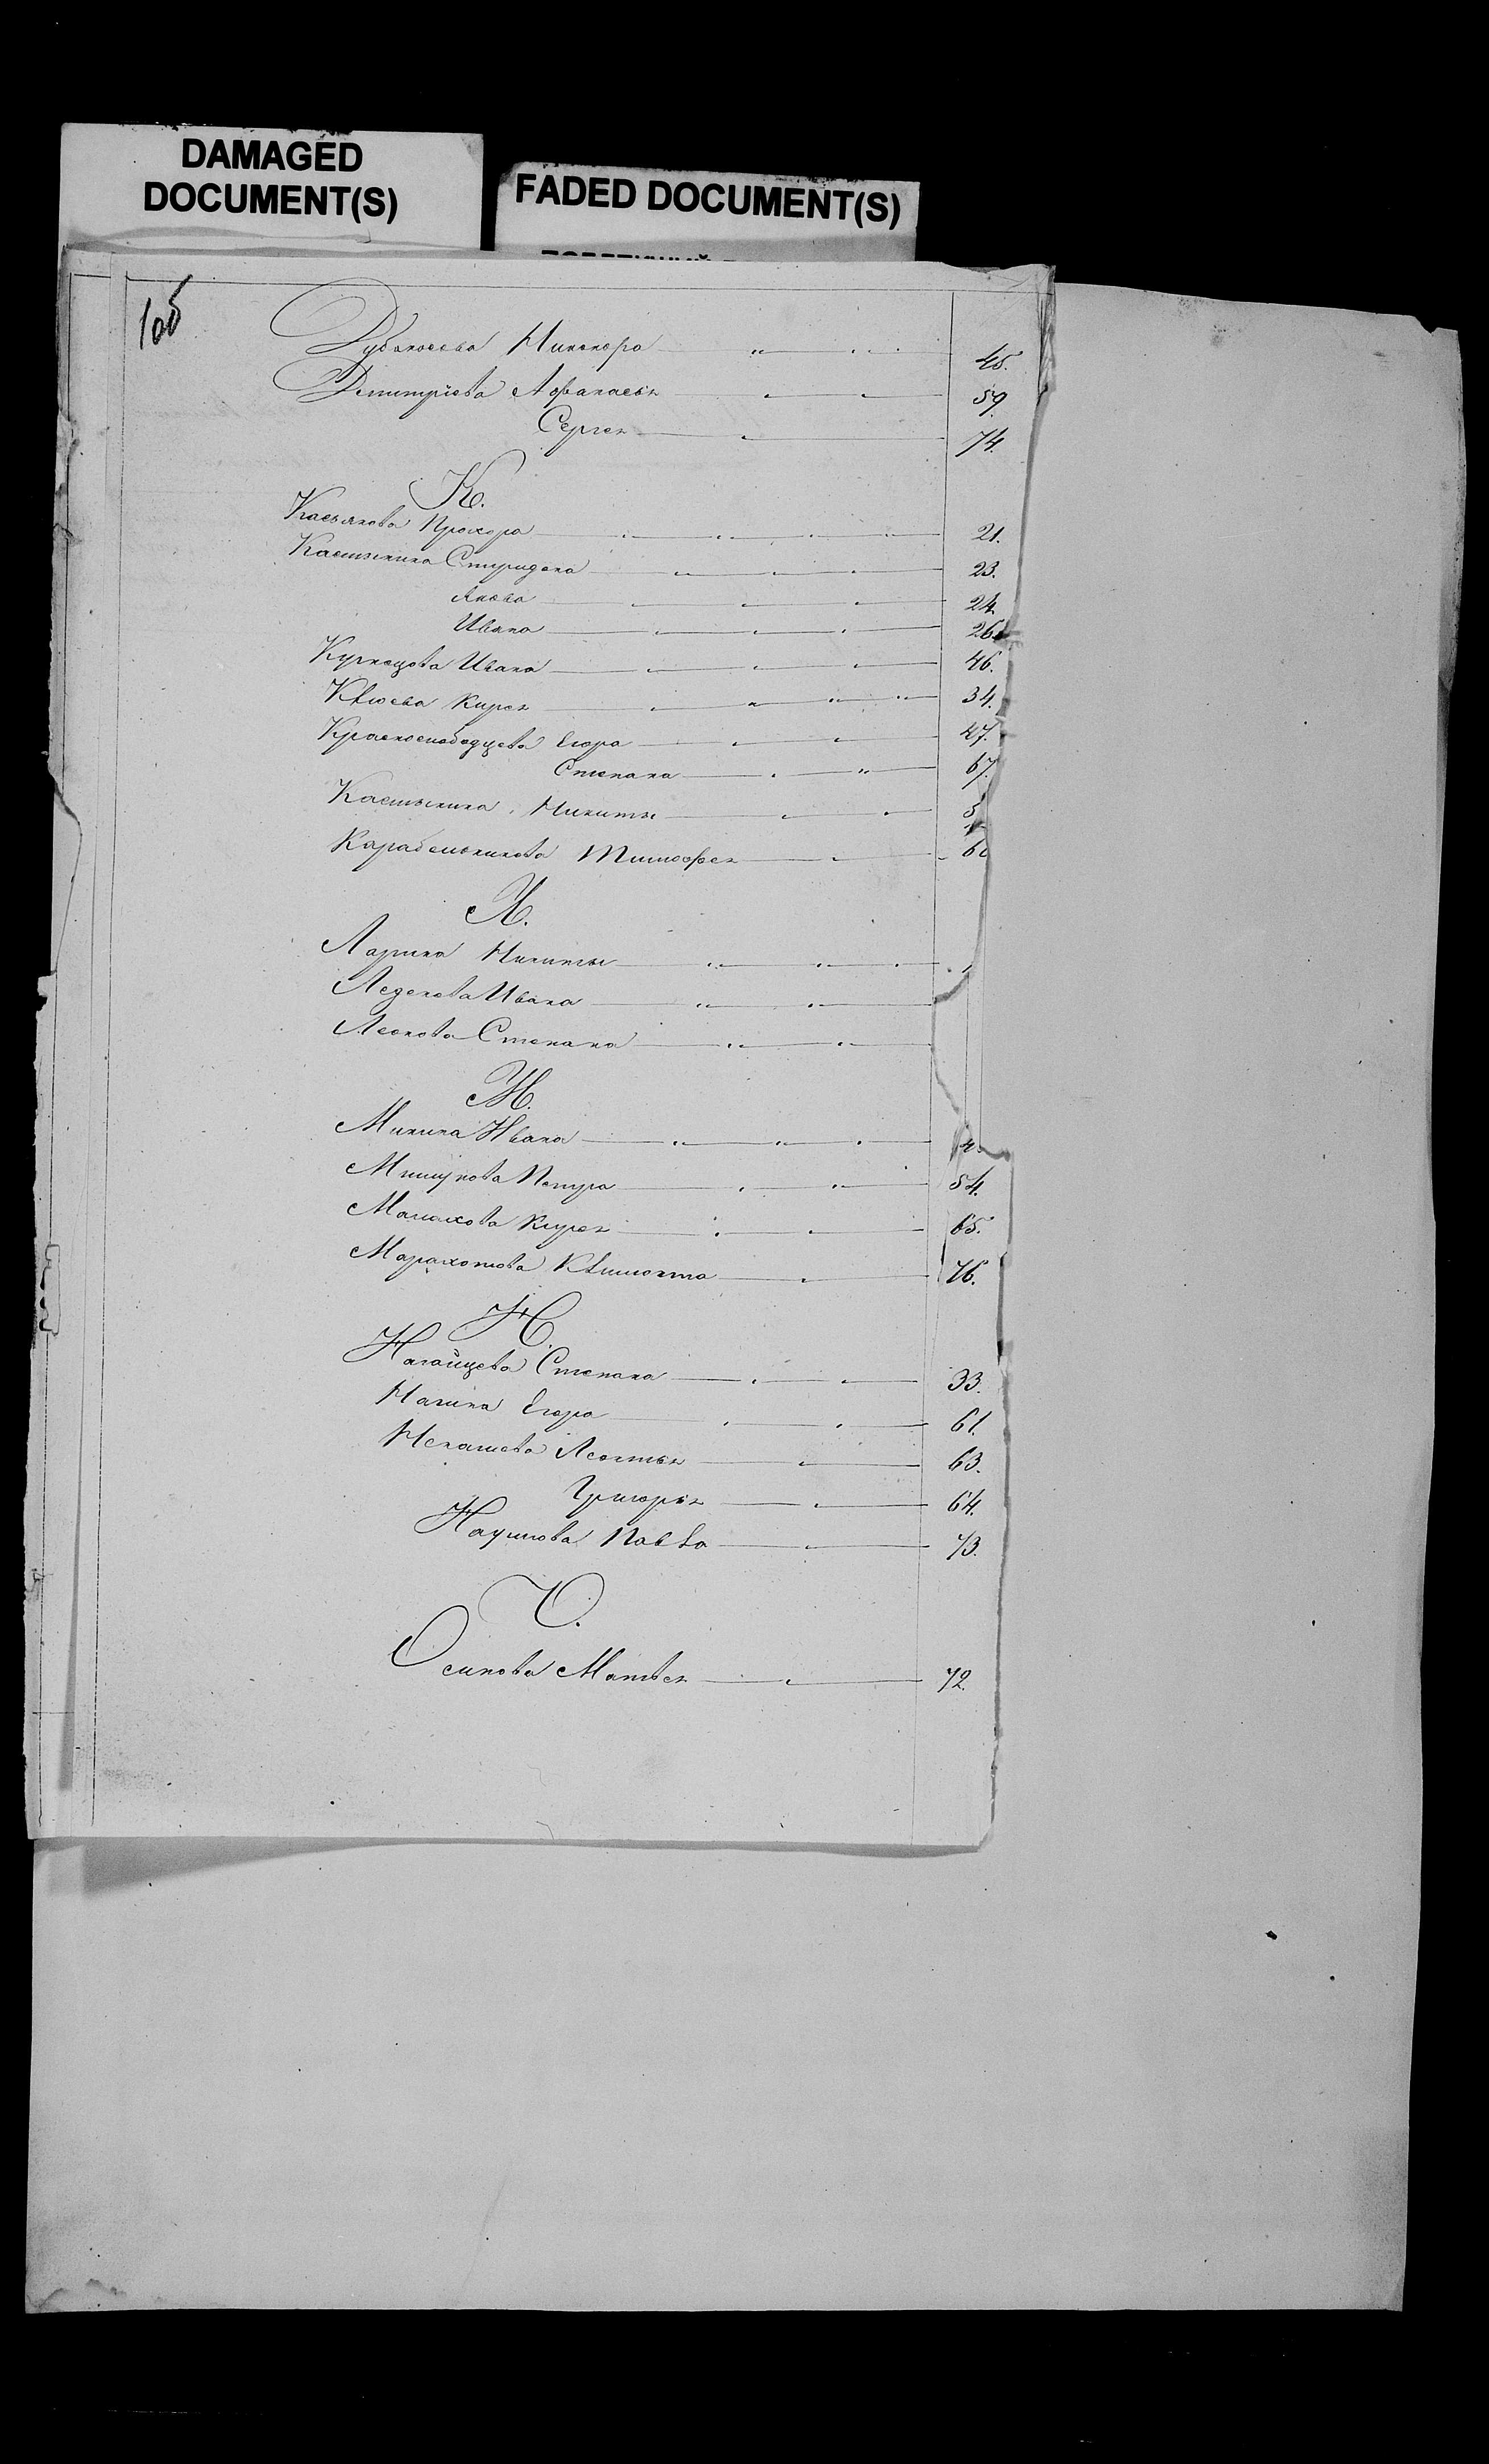 DAMAGED
DOCUMENT(S)
FADED DOCUMENT(S)
1об
Никонора 45.
Дмитріева Афанасья 59.
Сергея 74.
К.
Касьянова Прохора 21.
Кастыкина Спиридона 23.
Якова 24.
Ивана 26.
Кузнецова Ивана 46.
Клюева Кирея 34.
Краснослободцева Егора 47.
Степана 67.
Кастыкина Никиты
Карабельникова Тимофея
Л.
Ларина Никиты
Леденева Ивана
Леонова Степана
М.
Минина Ивана
Мишукова Петра 54.
Малахова Кирея 65.
Марахотова Климонта 76.
Н.
Нагайцева Степана 33.
Нагина Егора 61.
Некашева Леонтья 63.
Григорья 64.
Наумова Павла 73.
О.
Осипова Матвея 72.